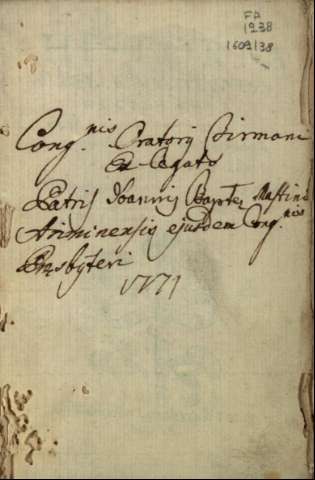 FA
1938
1609/38
Cong.nis Oratorij Firmani
Ex Legato
Patris Joannis Bapte Mastini
Ariminensis ejusdem Cong.nis
Presbyteri
1771